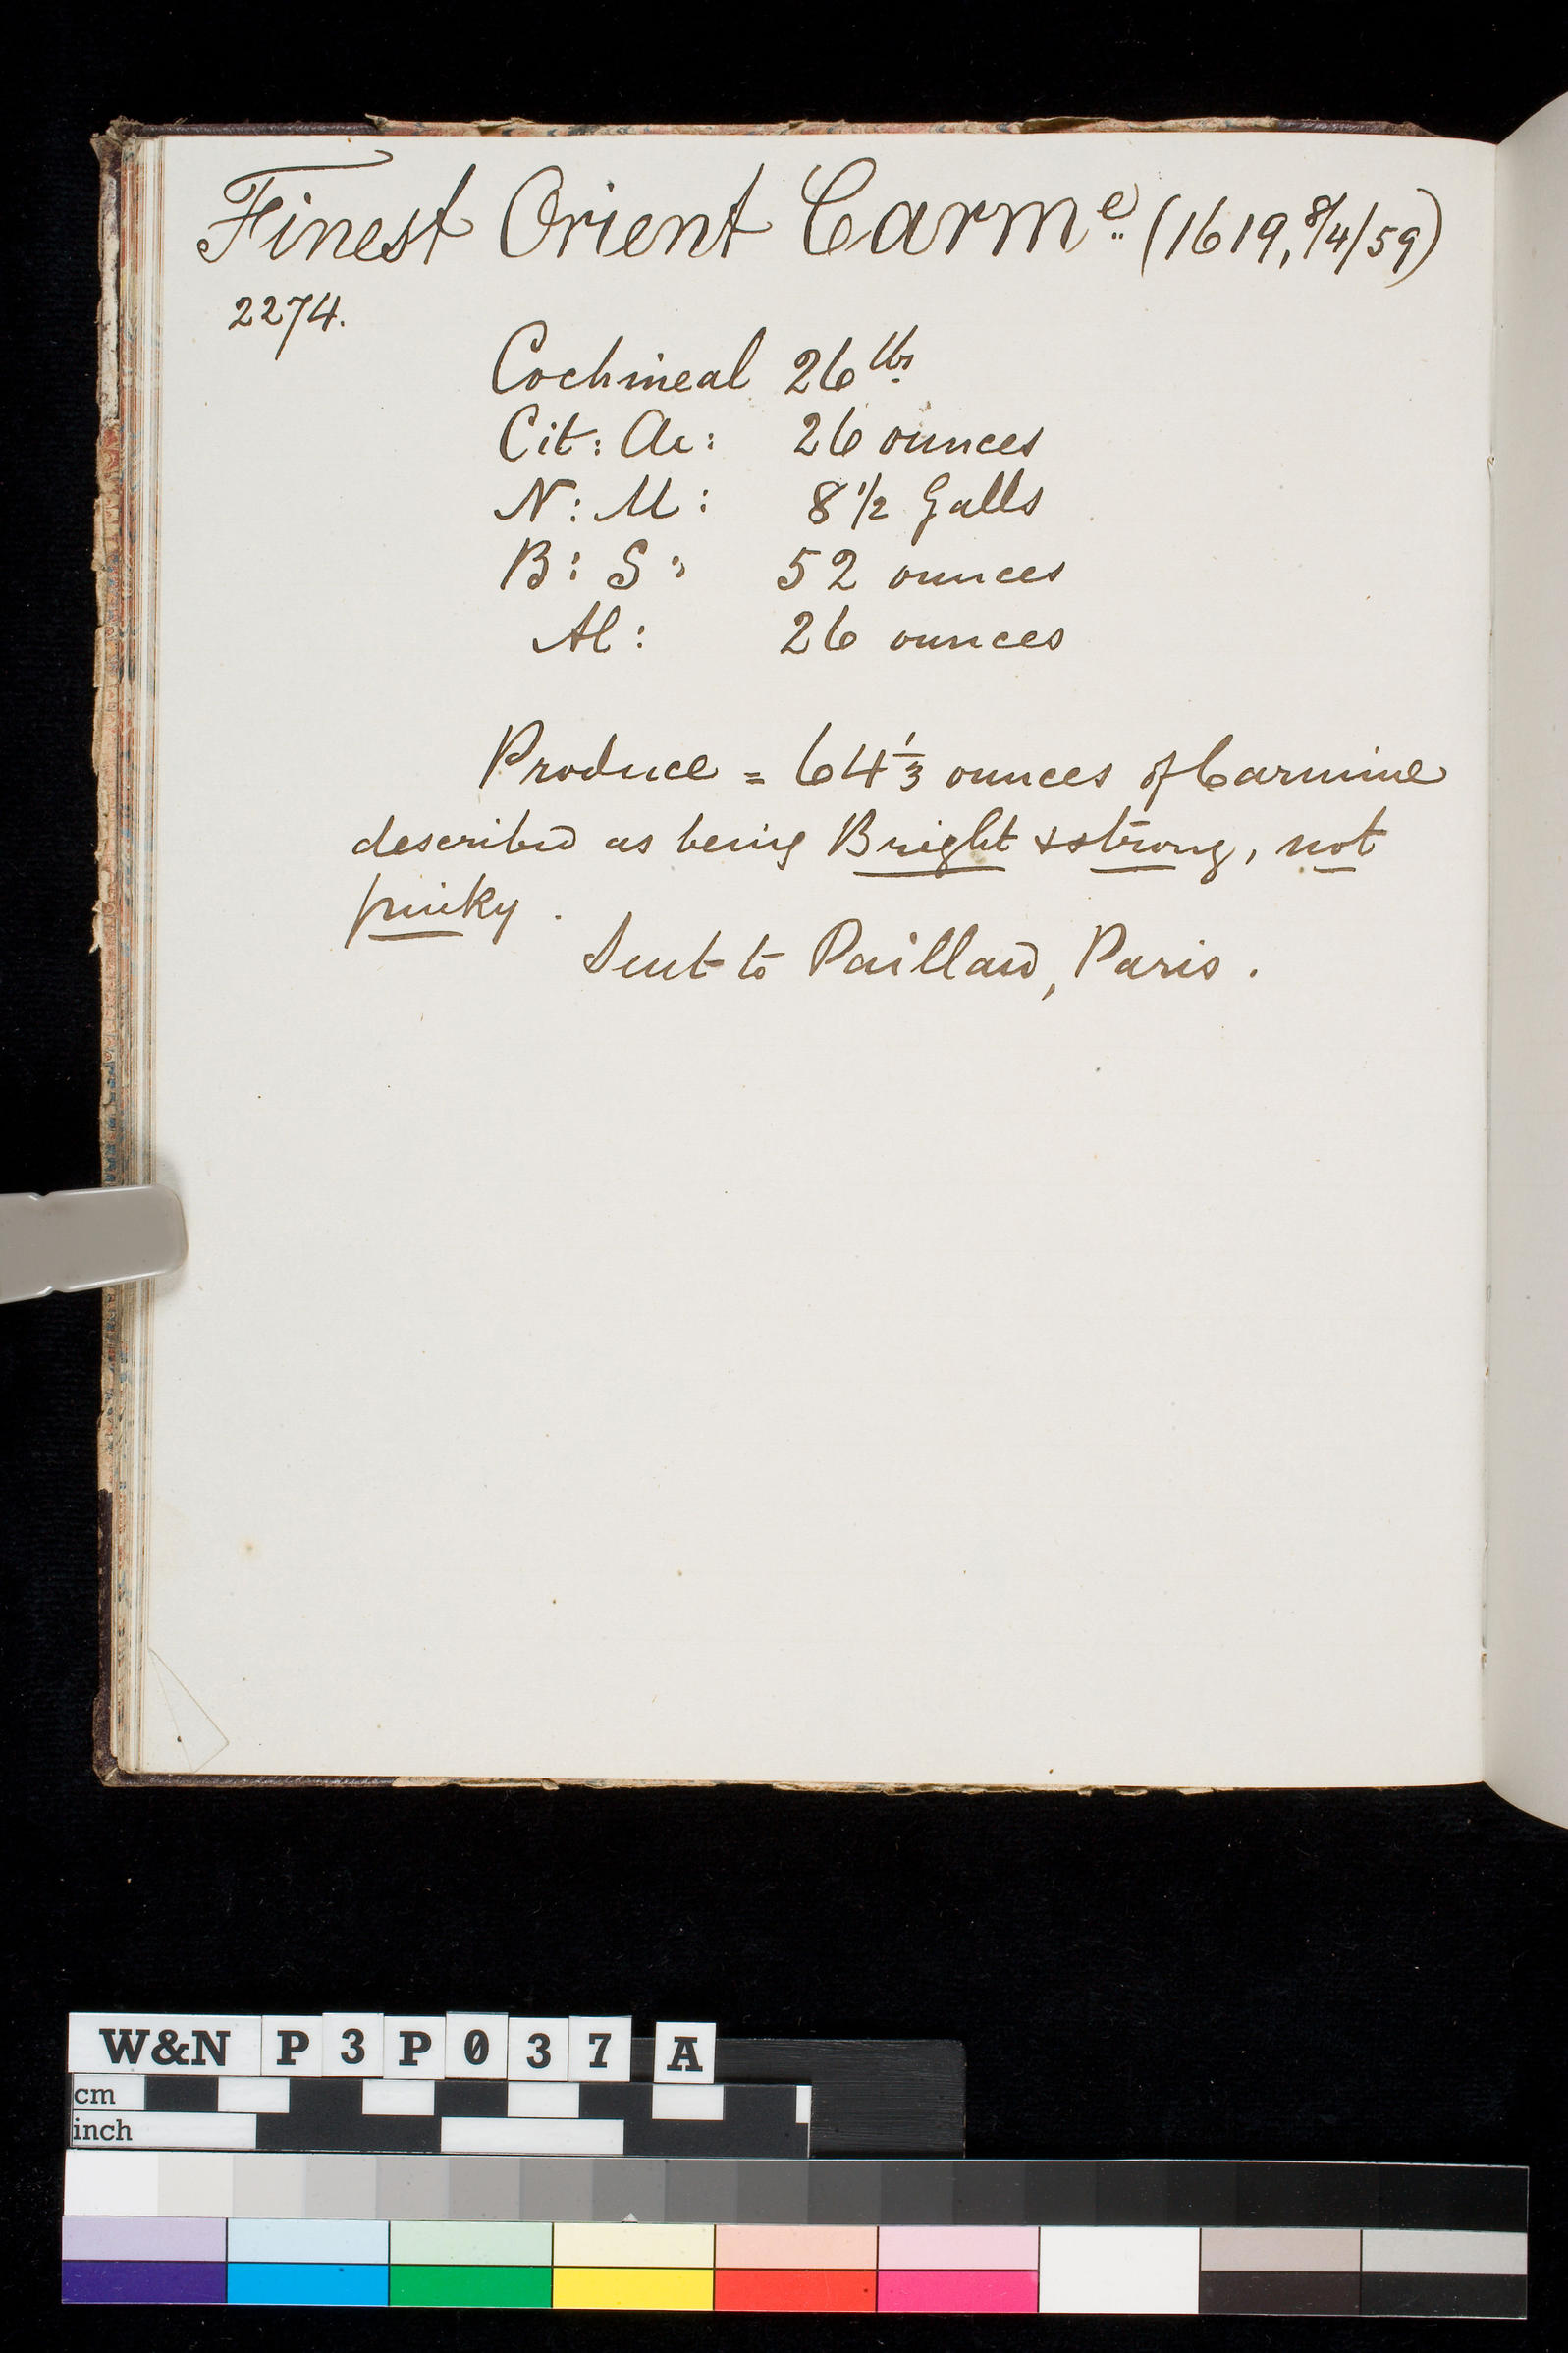 Finest Orient Carmᵉ (1619, 8/4/59)
2274.
Cochineal 26 lbs
Cit: Ac: 26 ounces
N: M: 8 1/2 Galls
B: S: 52 ounces
Al: 26 ounces
Produce = 64 1/3 ounces of Carmine
described as being Bright & strong, not
pinky.
Sent to Paillard, Paris.
W&N P3P037 A
cm
inch